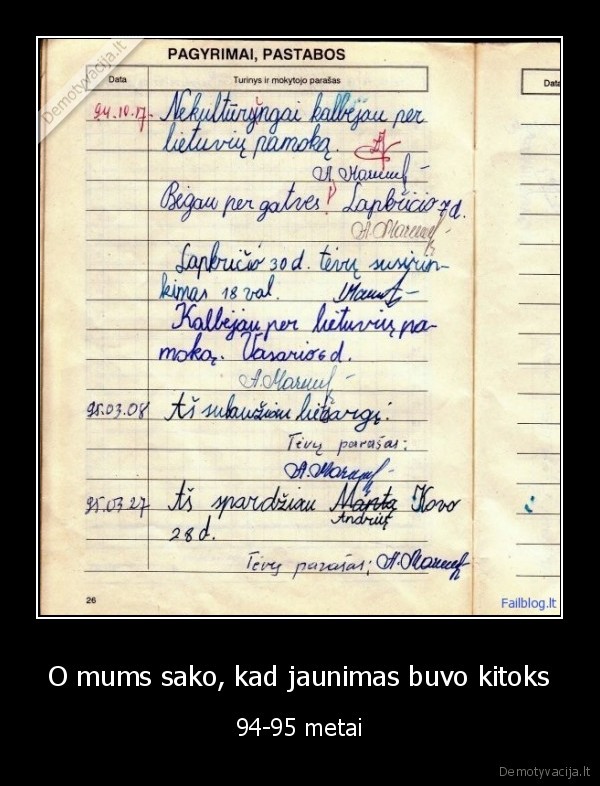 Demotyvacija.lt
PAGYRIMAI, PASTABOS
Data
Turinys ir mokytojo parašas
Data
94.10.17. Nekultūryngai kalbėjau per
lietuvių pamoką.
Bėgau per gatves! Lapkričio 7 d.
Lapkričio 30 d. tėvų susirin-
kimas 18 val.
Kalbėjau per lietuvių pa-
moką. Vasario 6 d.
95.03.08 Aš sulaužiau
Tėvų parašas:
95.03.27 Aš spardžiau Mantą Kovo
Andrių
28 d.
Tėvų parašas:
26
Failblog.lt
O mums sako, kad jaunimas buvo kitoks
94-95 metai
Demotyvacija.lt